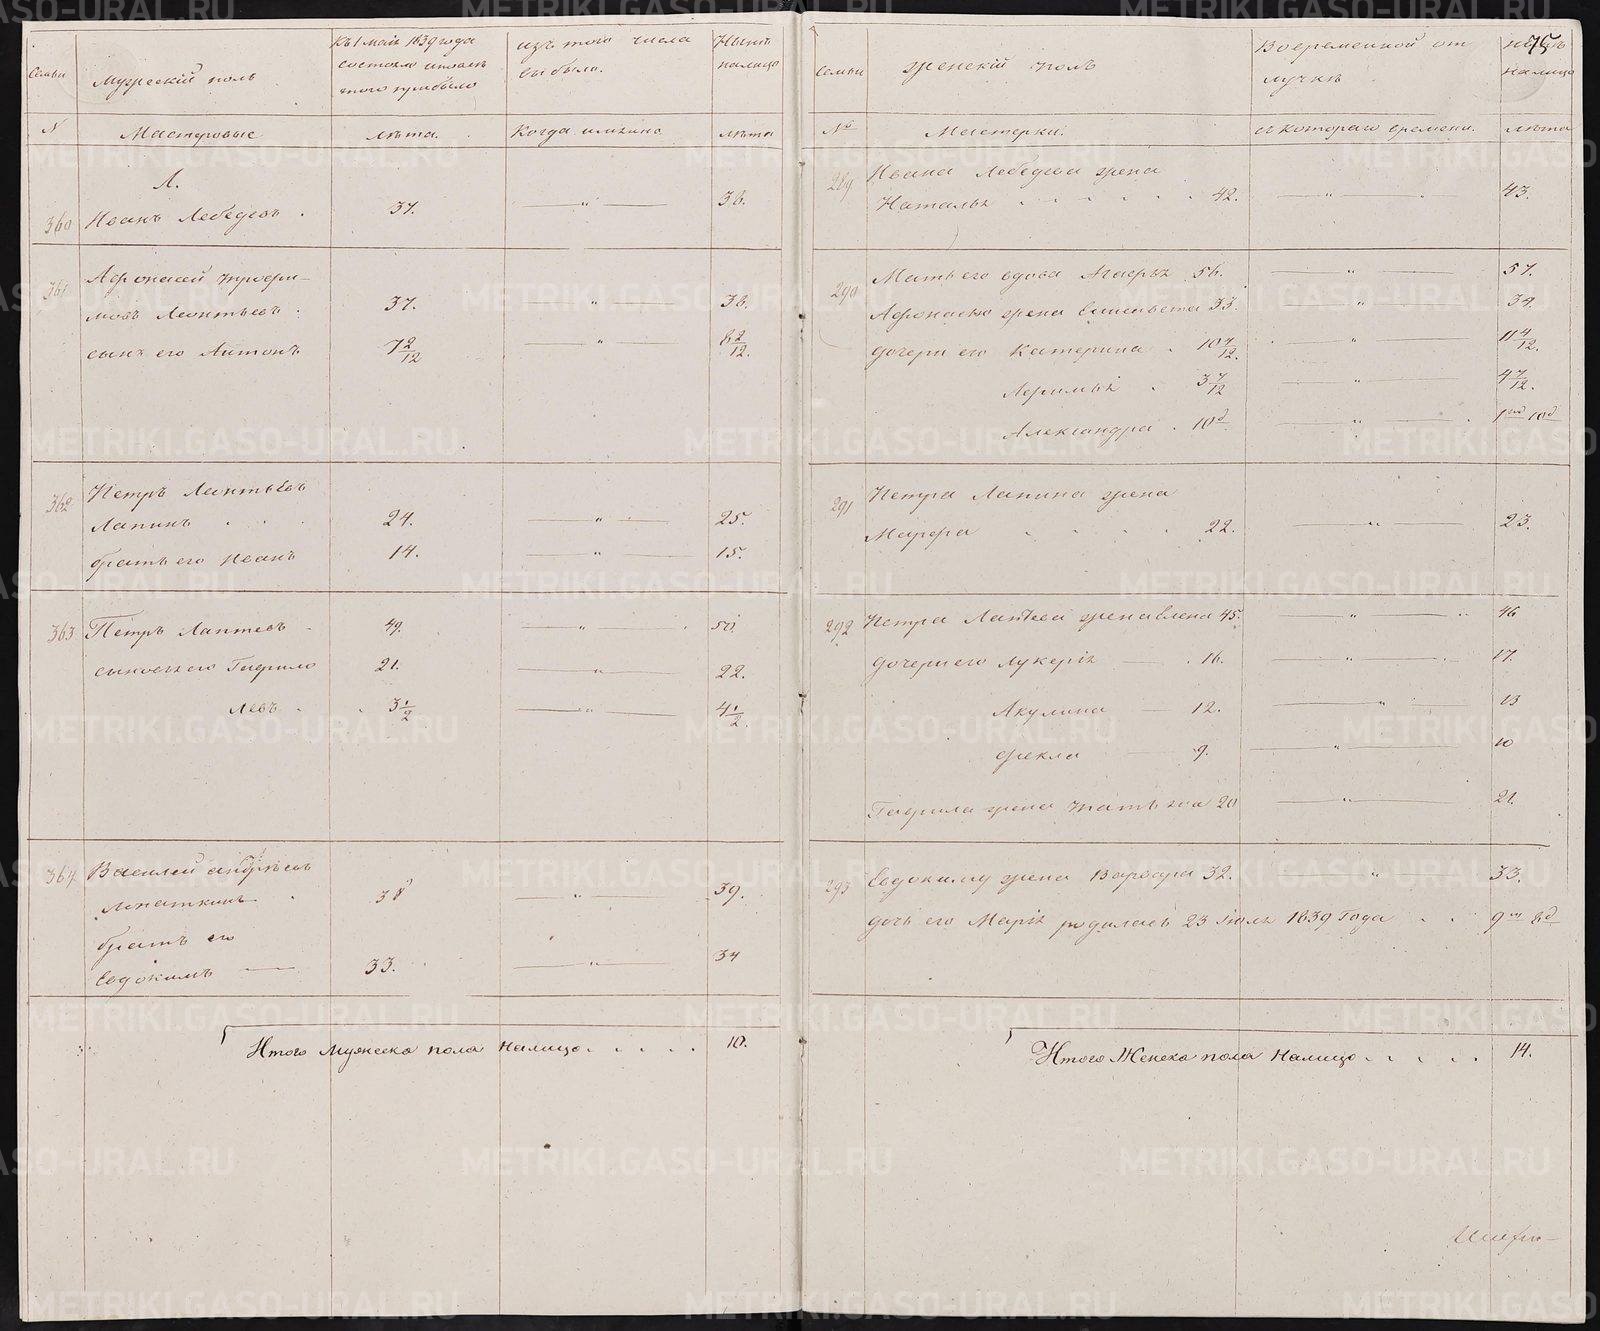 Семьи
Мужескій полъ
Къ 1 маія 1839 года
состояло и послѣ
того прибыло
изъ того числа
выбыло.
Нынѣ
налицо
N
Мастеровые
лѣта.
Когда имянно
лѣта
Л.
360
Иванъ Лебедевъ .
37.
— „ —
38.
361
Афонасей Трофи-
мовъ Леонтьевъ .
37.
— „ —
38.
сынъ его Антонъ
7 2/12
— „ —
8 2/12.
362
Петръ Леонтьевъ
Лапинъ . . .
24.
— „ —
25.
братъ его Иванъ
14.
— „ —
15.
363
Петръ Лаптевъ
49.
— „ —
50.
сыновья его Гаврило
21.
— „ —
22.
Левъ .
3 1/2
— „ —
4 1/2.
364
Василей Андрѣевъ
Лопаткинъ .
38
— „ —
39.
братъ его
Евдокимъ —
33.
— „ —
34
Итого мужеска пола налицо . . . . .
10.
75
Семьи
женскій полъ
Во временной от
лучкѣ
налицо
№
Мастерки.
съ котораго времени.
лѣта
289
Ивана Лебедева жена
Наталья . . . . . .
42.
— „ —
43.
290
Мать его вдова Агафья 56.
— „ —
57.
Афонасью жена Елисавета 33.
— „ —
34.
дочери его Катерина . 10 4/12.
— „ —
11 4/12.
Афимья . 3 7/12
— „ —
4 7/12.
Александра . 10 д
— „ —
10 д
291
Петра Лапина жена
Марфа . . . . 22.
— „ —
23.
292
Петра Лаптева жена Елена 45.
— „ —
46
дочери его Лукерья — . 16.
— „ —
17.
Акулина — 12.
— „ —
13
Фекла — 9.
— „ —
10
Гаврила жена Татьяна 20
— „ —
21.
293
Евдокиму жена Варвара 32.
— „ —
33.
дочь его Марья родилась 23 Іюля 1839 года . .
9 м 8 д
Итого Женска пола налицо . . . . .
14.
METRIKI.GASO-URAL.RU